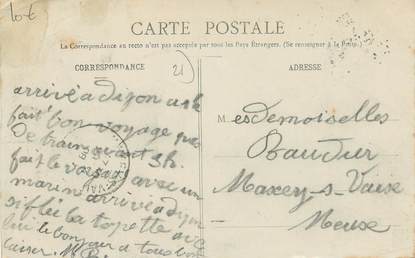 10 €
CARTE POSTALE
La Correspondance au recto n'est pas acceptée par tous les Pays Étrangers. (Se renseigner à la Poste.)
CORRESPONDANCE
21
arrivé a dijon a
fait bon voyage
De train 3h.
fait le voyage avec un
marin arrivé a dijon
siflée la topette
le bonjour a tous bon
ADRESSE
Mesdemoiselles
Baudier
Maxey-s-Vaise
Meuse